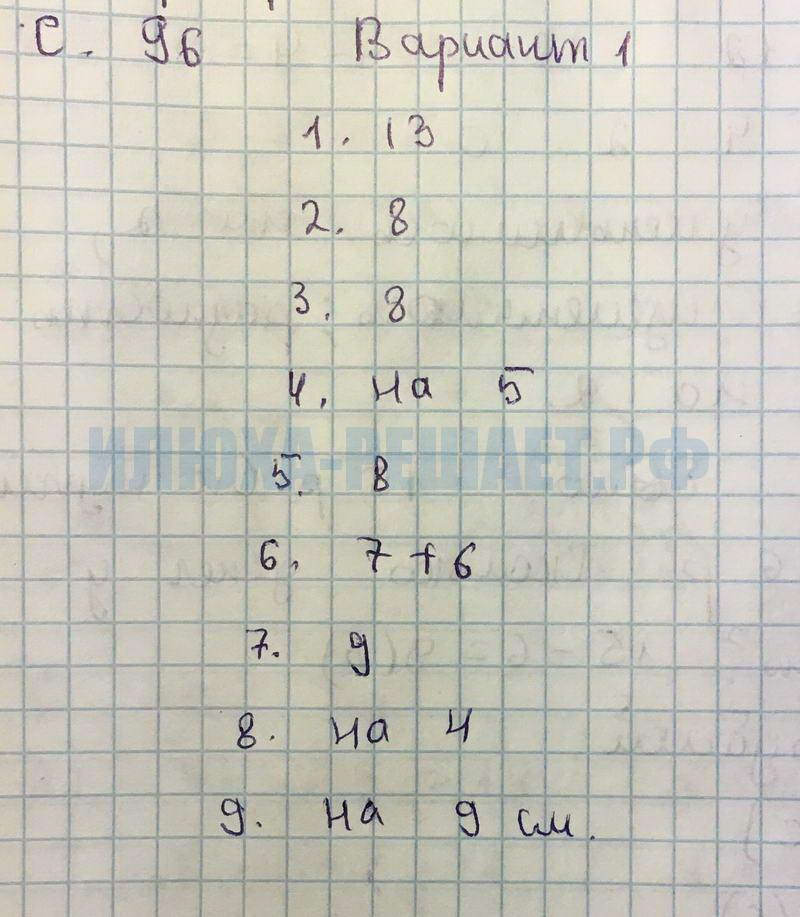 С. 96 Вариант 1
1. 13
2. 8
3. 8
4. на 5
ИЛЮХА-РЕШАЕТ.РФ
5. 8
6. 7 + 6
7. 9
8. на 4
9. на 9 см.